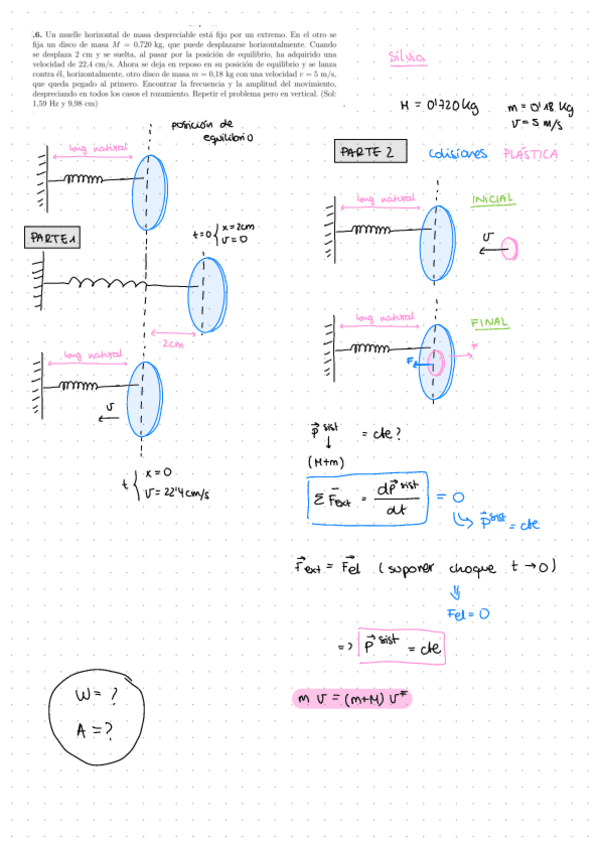 .6. Un muelle horizontal de masa despreciable está fijo por un extremo. En el otro se
fija un disco de masa M = 0,720 kg, que puede desplazarse horizontalmente. Cuando
se desplaza 2 cm y se suelta, al pasar por la posición de equilibrio, ha adquirido una
velocidad de 22,4 cm/s. Ahora se deja en reposo en su posición de equilibrio y se lanza
contra él, horizontalmente, otro disco de masa m = 0,18 kg con una velocidad v = 5 m/s,
que queda pegado al primero. Encontrar la frecuencia y la amplitud del movimiento,
despreciando en todos los casos el rozamiento. Repetir el problema pero en vertical. (Sol:
1,59 Hz y 9,98 cm)
Silvia
M = 0'720 Kg
m = 0'18 Kg
v = 5 m/s
posición de
equilibrio
long natural
PARTE 1
t=0 { x = 2cm
v = 0
2cm
long natural
v
t { x = 0
v = 22'4 cm/s
W = ?
A = ?
PARTE 2 colisiones PLÁSTICA
long natural
INICIAL
v
long natural
FINAL
F
F
p⃗ sist = cte?
↓
(M+m)
Σ F⃗ext = dp⃗ sist / dt = 0
↳ p⃗ sist = cte
F⃗ext = F⃗el (suponer choque t → 0)
⇓
Fel = 0
=> p⃗ sist = cte
m v = (m+M) v*